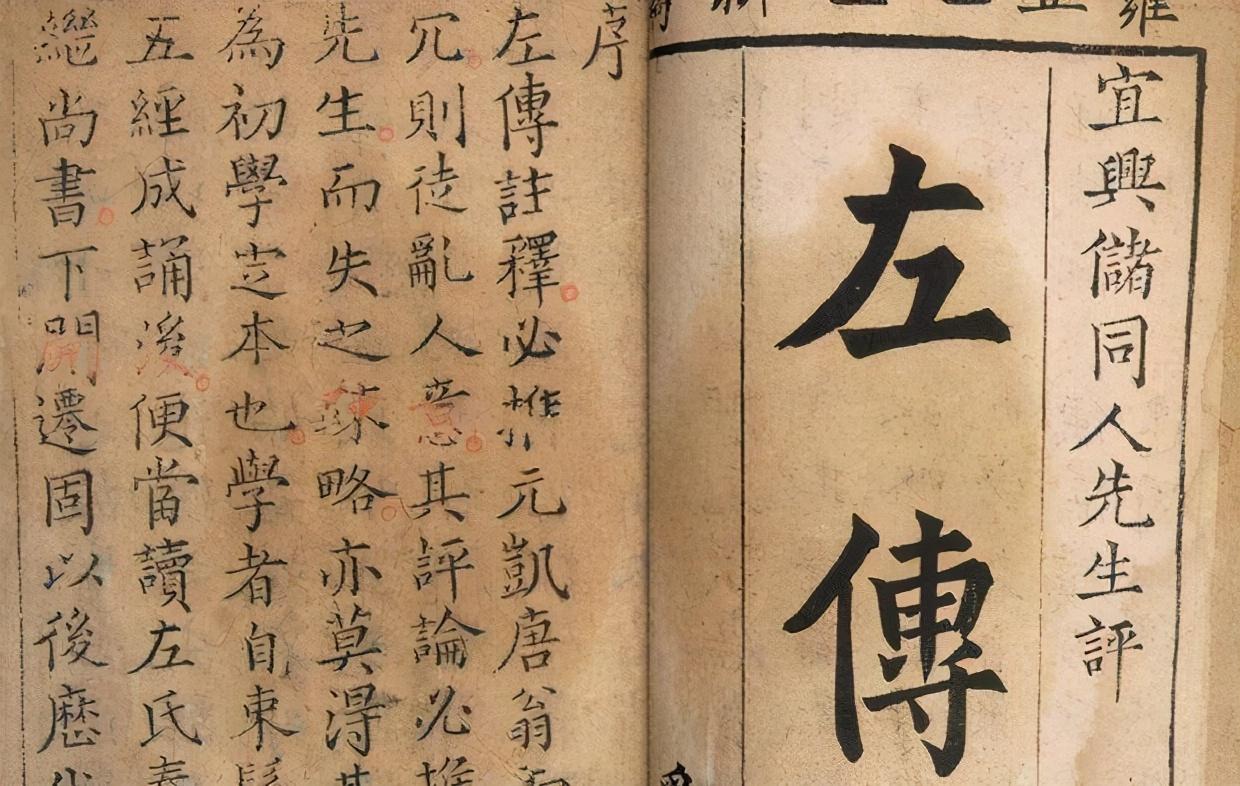 宜興儲同人先生評
左傳
序
左傳註釋必推元凱唐翁
冗則徒亂人意其評論必推
先生而失之踈略亦莫得其
為初學㝎本也學者自束髮
五經成誦後便當讀左氏春
繼尚書下開遷固以後歷代